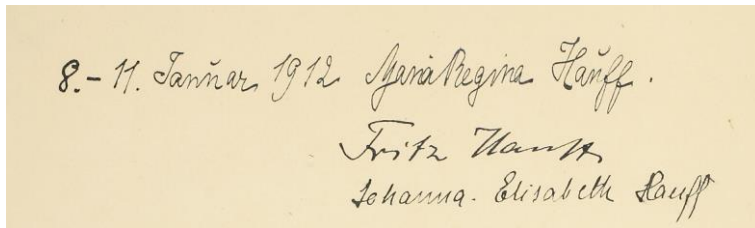 8.-11. Januar 1912 Maria Regina Hauff.
Fritz Hauff
Johanna. Elisabeth Hauff